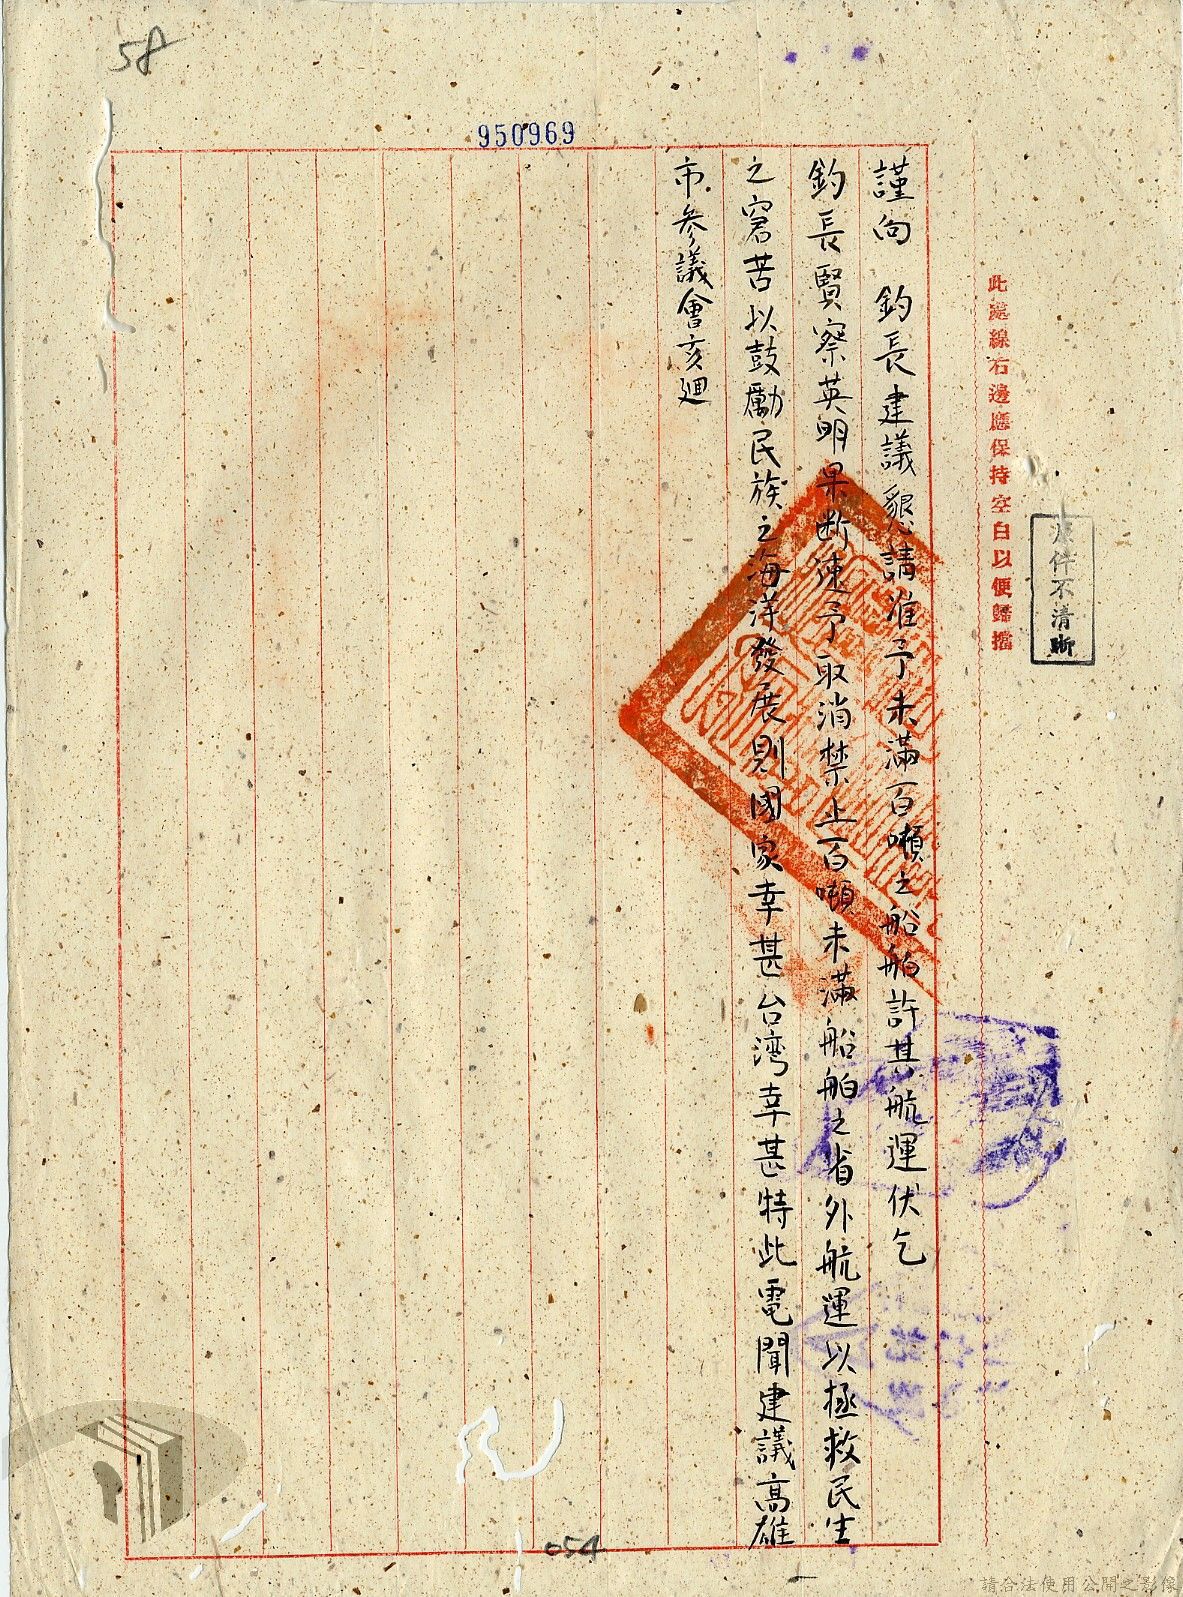 58
950969
此處線右邊應保持空白以便歸檔
原件不清晰
謹向 鈞長建議懇請准予未滿百噸之船舶許其航運伏乞
鈞長賢察英明果断速予取消禁止百噸未滿船舶之省外航運以拯救民生
之窘苦以鼓勵民族之海洋發展則國家幸甚台湾幸甚特此電聞建議高雄
市參議會亥廻
054
請合法使用公開之影像